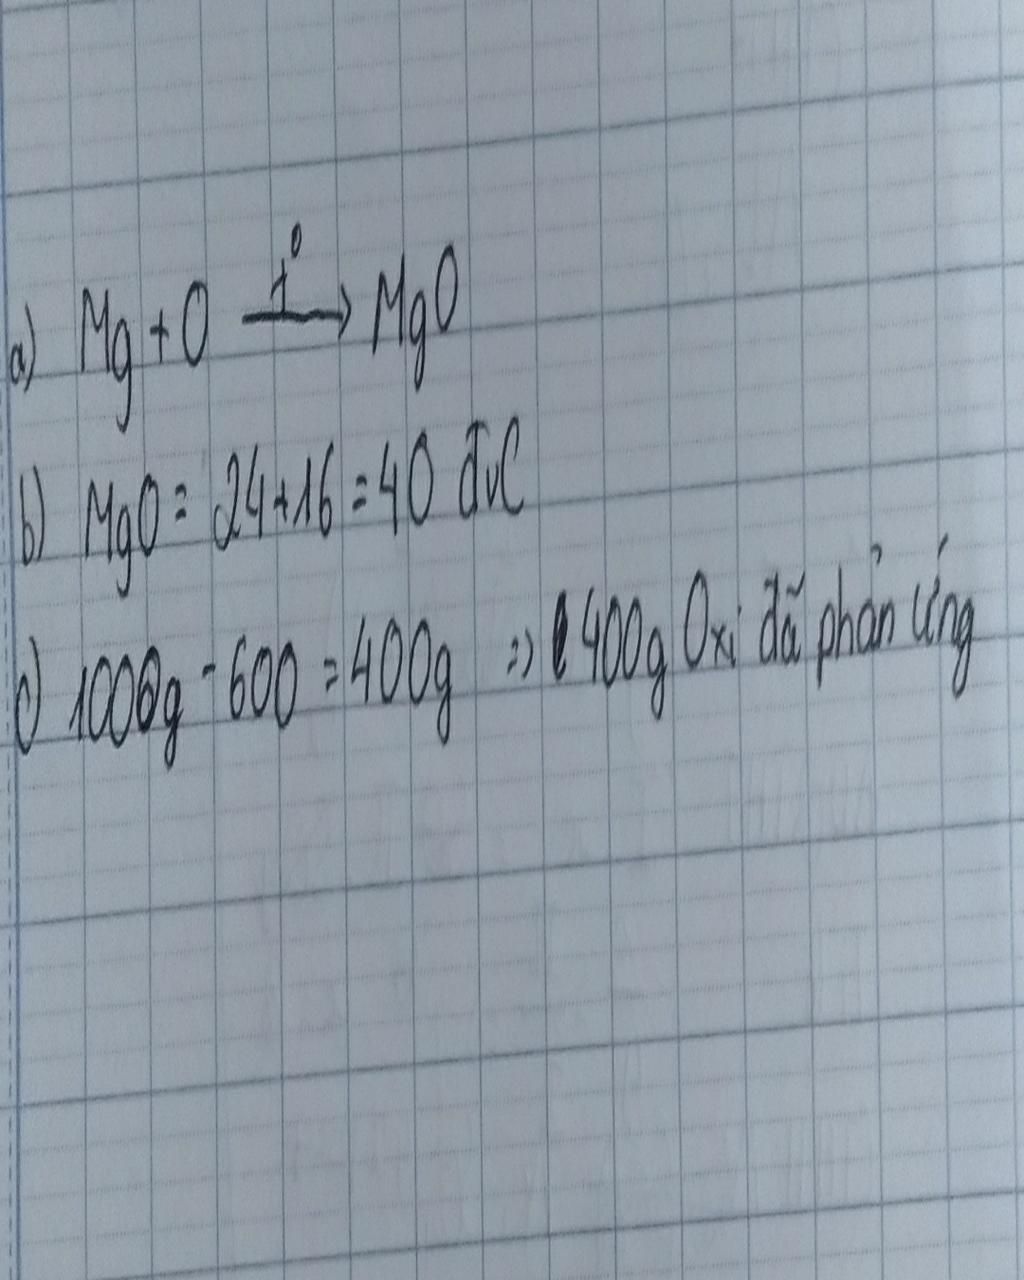 a) Mg + O t⁰→ MgO
b) MgO = 24 + 16 = 40 đvC
c) 1000g - 600 = 400g => 400g Oxi đã phản ứng